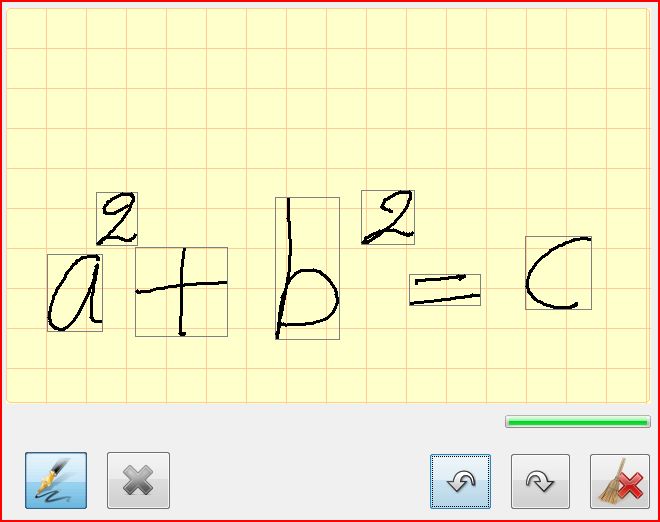 a² + b² = c